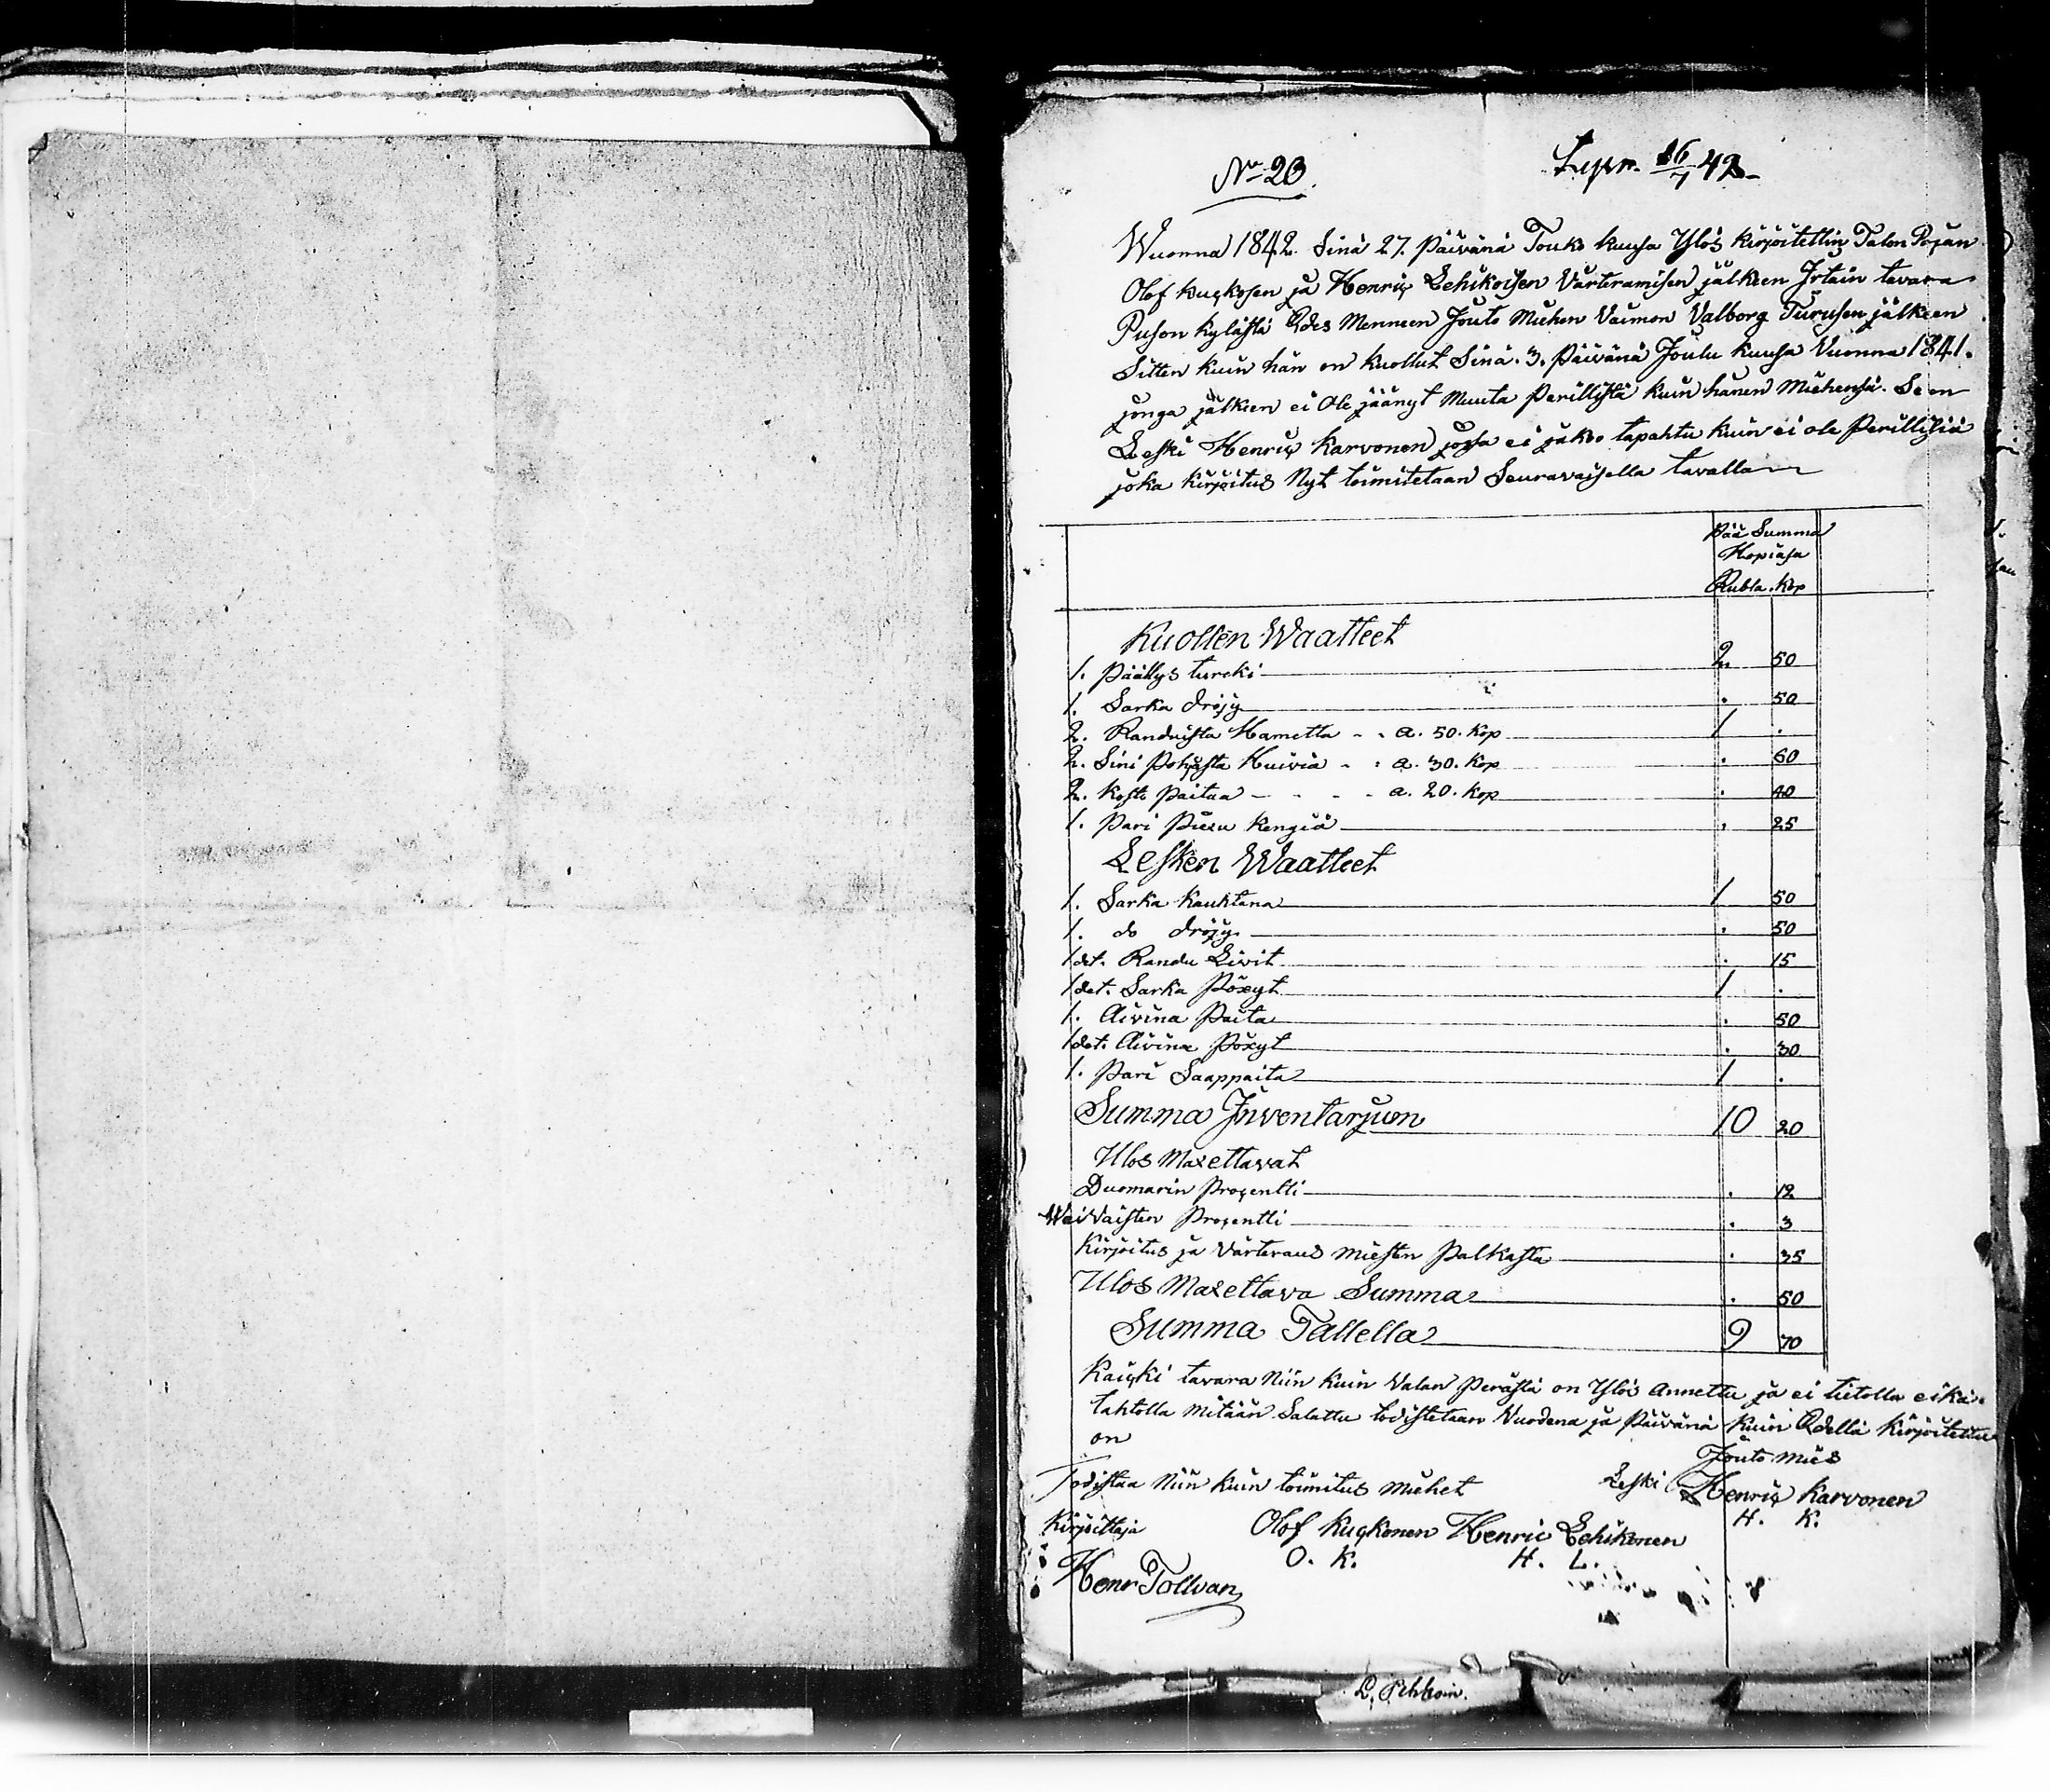 No 23
16/7 42
Wuonna 1842. Sinä 27. Päivänä Touko kuusa Ylös kirjoitettin Talon Pojan
Olof kuckosen ja Henric Lehikoisen Värteramisen jälkeen Irtain tavara
Puson kylästä Edes Menneen Jouto Miehen Vaimon Valborg Turusen jälkeen
Sitten kuin hän on kuollut Sinä. 3. Päivänä Joulu kuusa Vuonna 1841.
jonga jälkeen ei Ole jäänyt Muuta Perillistä kuin hänen Miehensä. Se on
Leski Henric Karvonen josa ei jako tapahtu kuin ei ole Perillisiä
joka kirjoitus Nyt toimitetaan Seuravaisella tavalla
Pää Summa
Hopiasa
Rubla. Kop
Kuollen Waatteet
1. Päällys turcki 2. 50
1. Sarka dröjy . 50
2. Randuista Hametta - . a. 50. Kop 1 .
2. Sini Pohjasta Huivia - . a. 30. Kop . 60
2. Kosto Paitaa - - - - a. 20. Kop . 40
1. Pari Piexu Kengiä . 25
Lesken Waatteet
1. Sarka kauhtana 1 50
1. do dröjy . 50
1 det. Randu Livit . 15
1 det. Sarka Pöxyt 1 .
1. Aivina Paita . 50
1 det. Aivina Pöxyt . 30
1. Pari Saappaita 1 .
Summa Inventarjum 10 20
Ulos Maxettavat
Duomarin Procentti . 12
WaiVaisten Procentti . 3
Kirjoitus ja Värteraus miesten Palkasta . 35
Ulos Maxettava Summa . 50
Summa Tallella 9 70
Kaicki tavara Niin kuin Valan Perästä on Ylös Annettu ja ei tietolla eikä
tahtolla Mitään Salattu todistetaan Vuodena ja Päivänä kuin Edellä kirjoitettu
on
Jouto mies
Todistaa Niin kuin toimitus miehet Leski Henric Karvonen
H. K.
Kirjoittaja Olof Kuckonen Henric Lehikonen
O. K. H. L.
Henr Tollvan